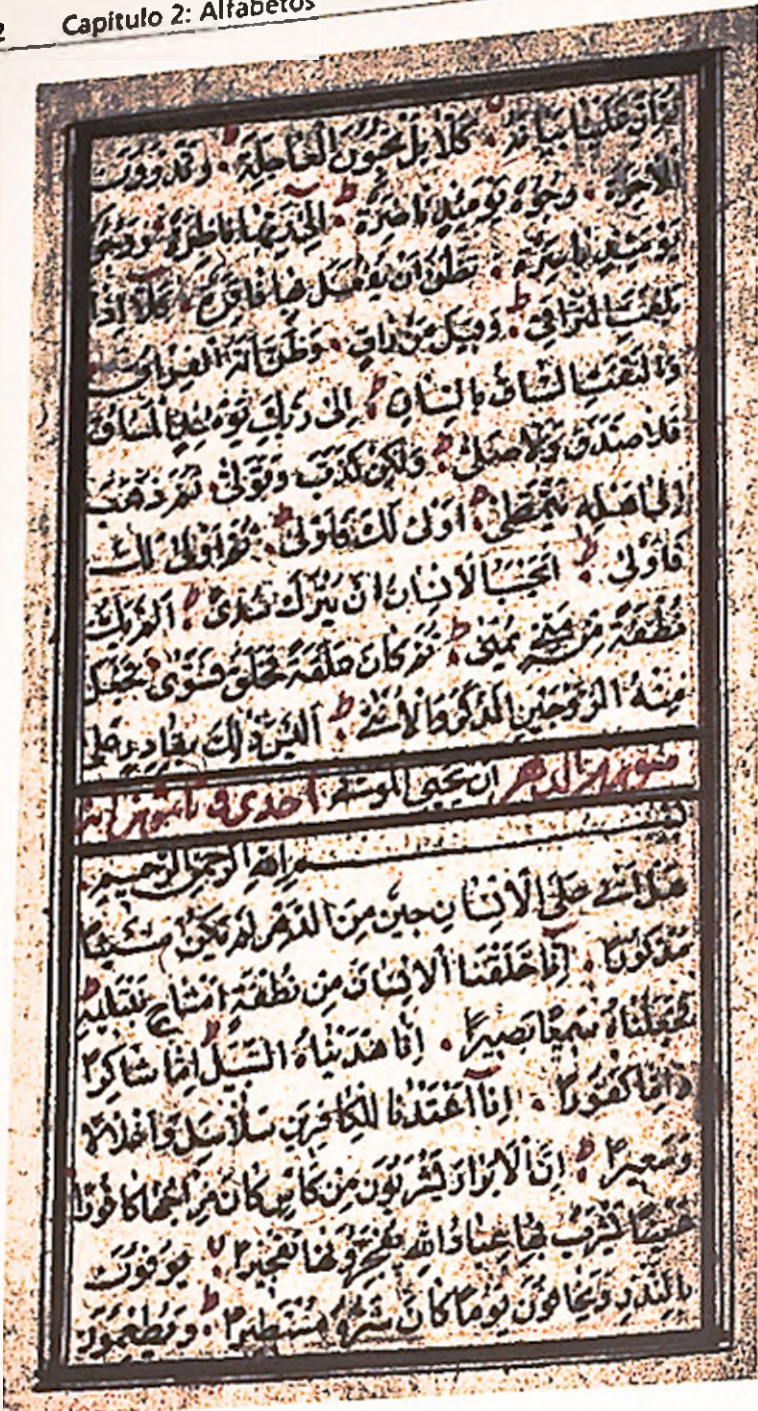 2 Capítulo 2: Alfabetos
ثُمَّ اِنَّ عَلَيْنَا بَيَانَهُ كَلَّا بَلْ تُحِبُّونَ الْعَاجِلَةَ وَتَذَرُونَ
الْاٰخِرَةَ وُجُوهٌ يَوْمَئِذٍ نَاضِرَةٌ اِلٰى رَبِّهَا نَاظِرَةٌ وَوُجُوهٌ
يَوْمَئِذٍ بَاسِرَةٌ تَظُنُّ اَنْ يُفْعَلَ بِهَا فَاقِرَةٌ كَلَّا اِذَا
بَلَغَتِ التَّرَاقِيَ وَقِيلَ مَنْ رَاقٍ وَظَنَّ اَنَّهُ الْفِرَاقُ
وَالْتَفَّتِ السَّاقُ بِالسَّاقِ اِلٰى رَبِّكَ يَوْمَئِذٍ الْمَسَاقُ
فَلَا صَدَّقَ وَلَا صَلّٰى وَلٰكِنْ كَذَّبَ وَتَوَلّٰى ثُمَّ ذَهَبَ
اِلٰى اَهْلِهِ يَتَمَطّٰى اَوْلٰى لَكَ فَاَوْلٰى ثُمَّ اَوْلٰى لَكَ
فَاَوْلٰى اَيَحْسَبُ الْاِنْسَانُ اَنْ يُتْرَكَ سُدًى اَلَمْ يَكُ
نُطْفَةً مِنْ مَنِيٍّ يُمْنٰى ثُمَّ كَانَ عَلَقَةً فَخَلَقَ فَسَوّٰى فَجَعَلَ
مِنْهُ الزَّوْجَيْنِ الذَّكَرَ وَالْاُنْثٰى اَلَيْسَ ذٰلِكَ بِقَادِرٍ عَلٰى
الدهر اَنْ يُحْيِيَ الْمَوْتٰى احدى و
بِسْمِ اللهِ الرَّحْمٰنِ الرَّحِيمِ
هَلْ اَتٰى عَلَى الْاِنْسَانِ حِينٌ مِنَ الدَّهْرِ لَمْ يَكُنْ شَيْئًا
مَذْكُورًا اِنَّا خَلَقْنَا الْاِنْسَانَ مِنْ نُطْفَةٍ اَمْشَاجٍ نَبْتَلِيهِ
فَجَعَلْنَاهُ سَمِيعًا بَصِيرًا اِنَّا هَدَيْنَاهُ السَّبِيلَ اِمَّا شَاكِرًا
وَاِمَّا كَفُورًا اِنَّا اَعْتَدْنَا لِلْكَافِرِينَ سَلَاسِلَ وَاَغْلَالًا
وَسَعِيرًا اِنَّ الْاَبْرَارَ يَشْرَبُونَ مِنْ كَاْسٍ كَانَ مِزَاجُهَا كَافُورًا
عَيْنًا يَشْرَبُ بِهَا عِبَادُ اللهِ يُفَجِّرُونَهَا تَفْجِيرًا يُوفُونَ
بِالنَّذْرِ وَيَخَافُونَ يَوْمًا كَانَ شَرُّهُ مُسْتَطِيرًا وَيُطْعِمُونَ